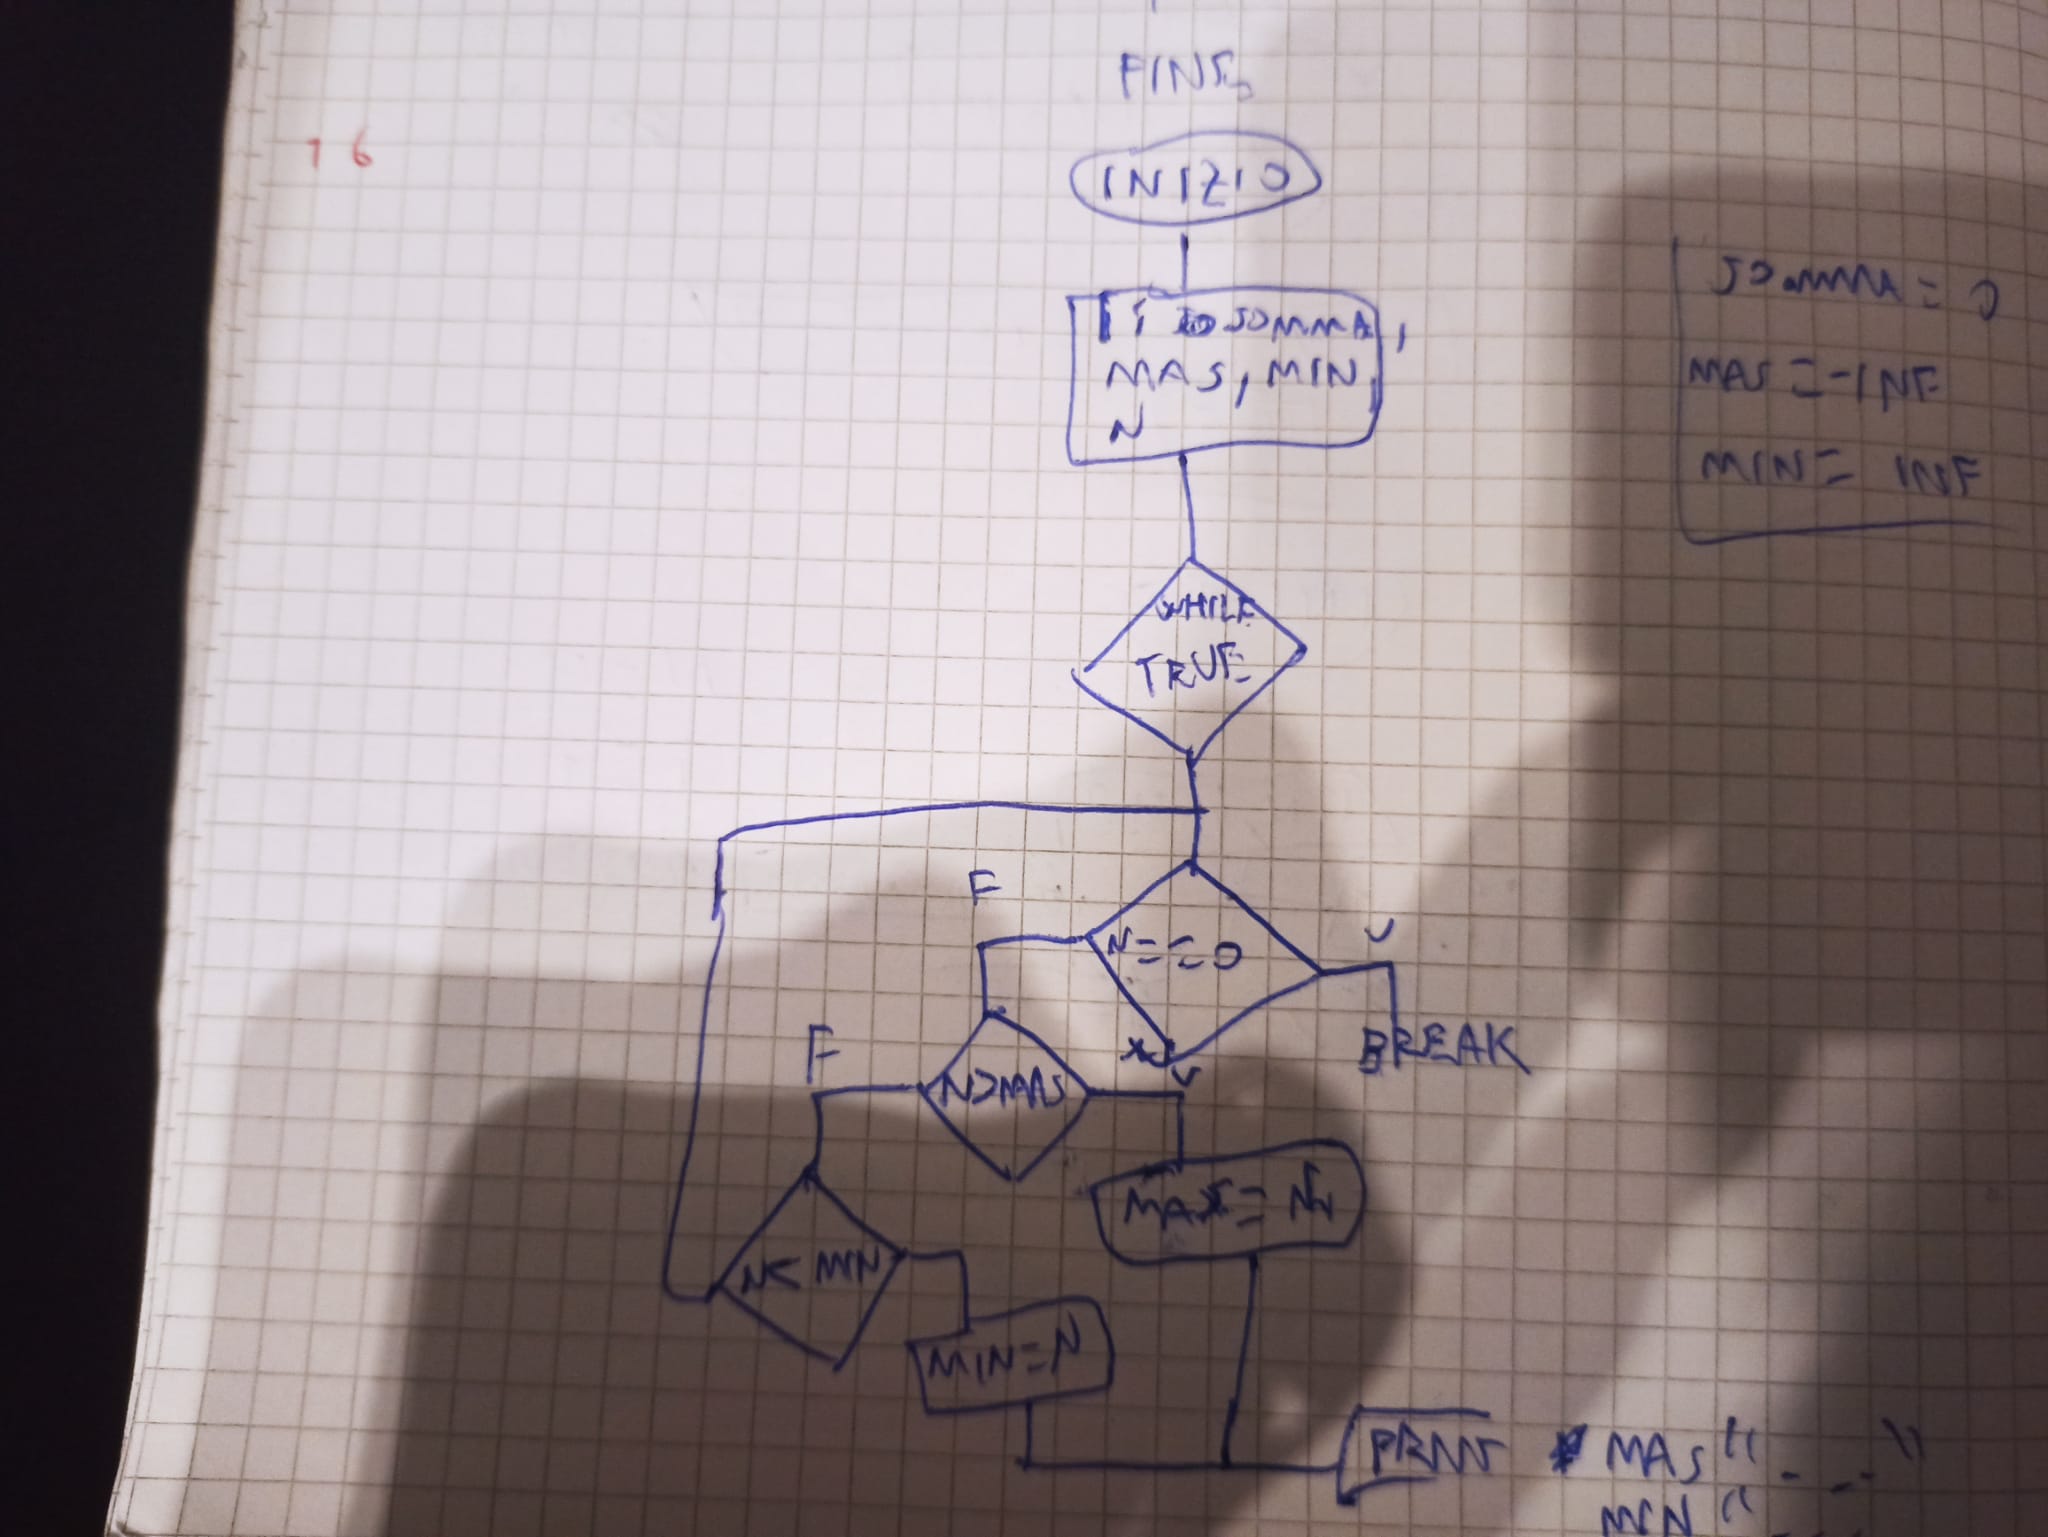 FINE
16
INIZIO
SOMMA,
MAS, MIN,
N
SOMMA = 0
MAS = -INF
MIN = INF
WHILE
TRUE
F
N==0
V
BREAK
F
N>MAS
V
MAS = N
N< MIN
MIN=N
PRINT MAS "_ _ _"
MIN "